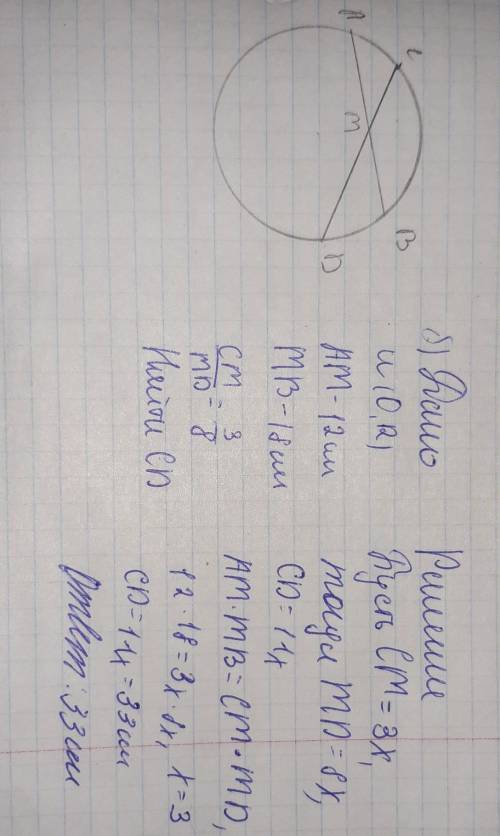 б) Дано
и (O, R)
AM = 12 см
MB = 18 см
CM/MD = 3/8
Найти CD
Решение
Пусть CM = 3x,
тогда MD = 8x,
CD = 11x
AM · MB = CM · MD,
12 · 18 = 3x · 8x, x = 3
CD = 11x = 33 см
Ответ: 33 см
A
C
M
B
D